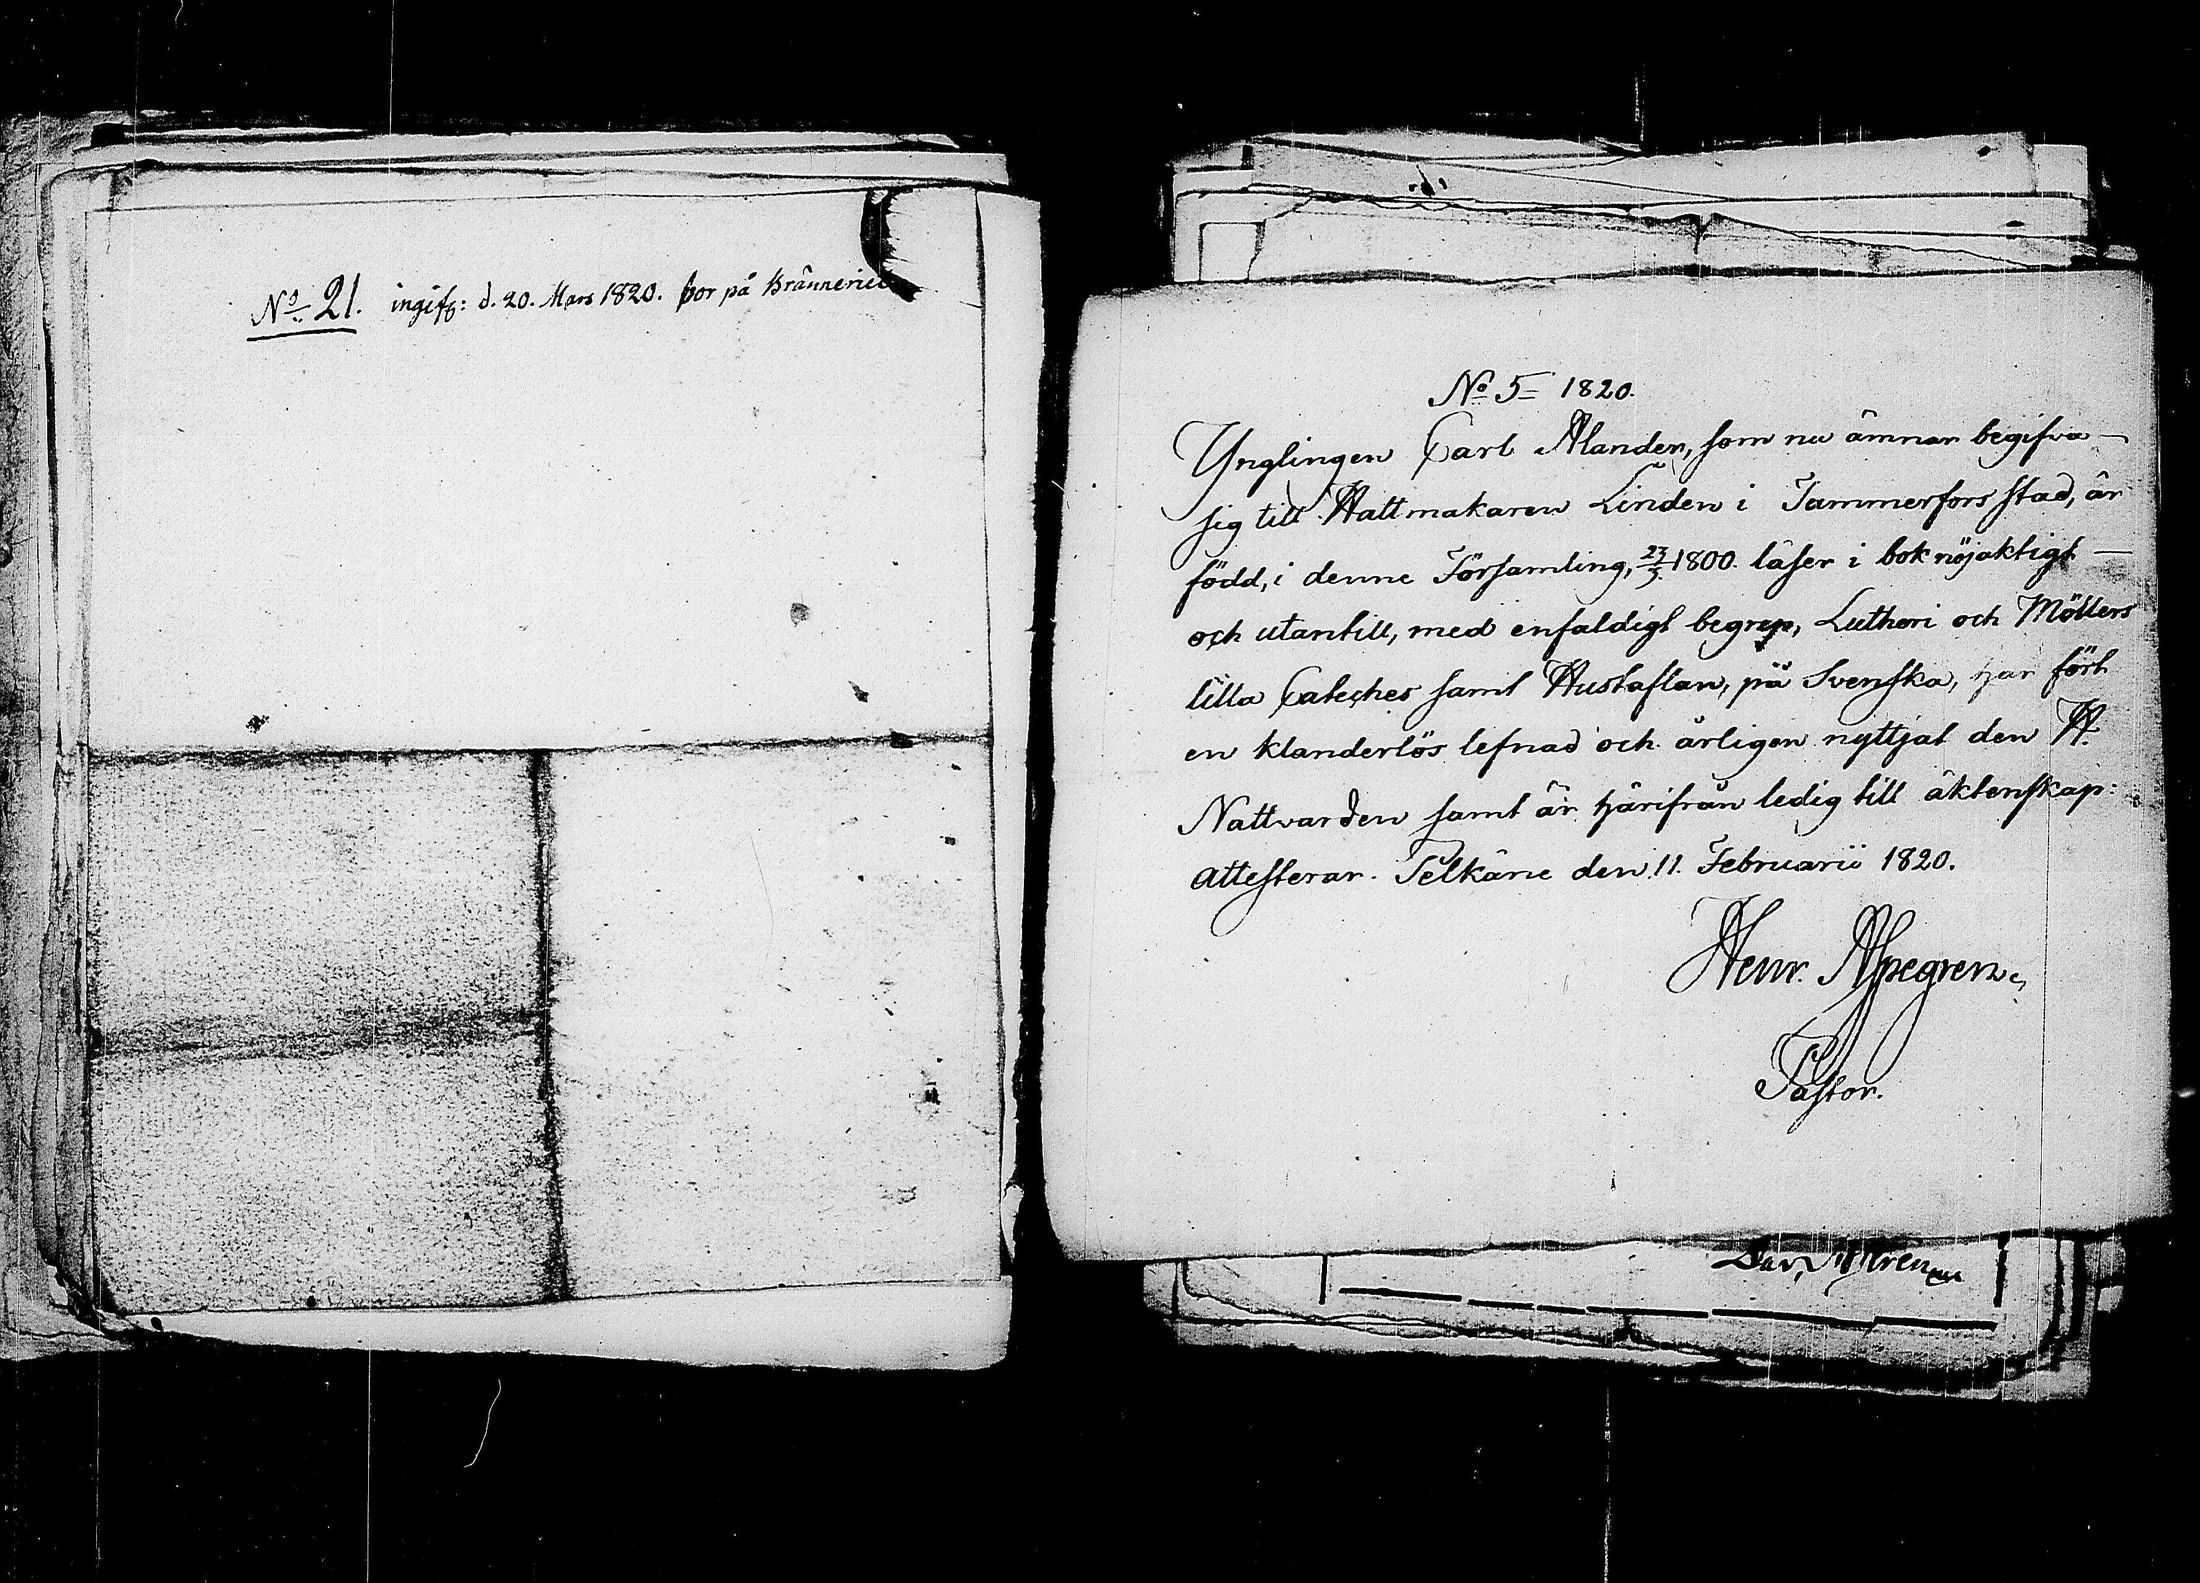 No 21. ingifv: d. 20. Mars 1820. bor på Bränneriet
No 5 1820.
Ynglingen Carl Alander, som nu ämnar begifva
sig till Hattmakaren Linden i Tammerfors stad, är
född, i denne Församling, 23/5. 1800. läser i bok nöjaktigt
och utantill, med enfaldigt begrep, Lutheri och Möllers
lilla Cateches samt Hustaflan, på Svenska, har fört
en klanderlös lefnad och årligen nyttjat den H.
Nattvarden samt är härifrån ledig till äktenskap:
attesterar. Pelkäne den 11. Februarii 1820.
Henr. Alpegren
Pastor.